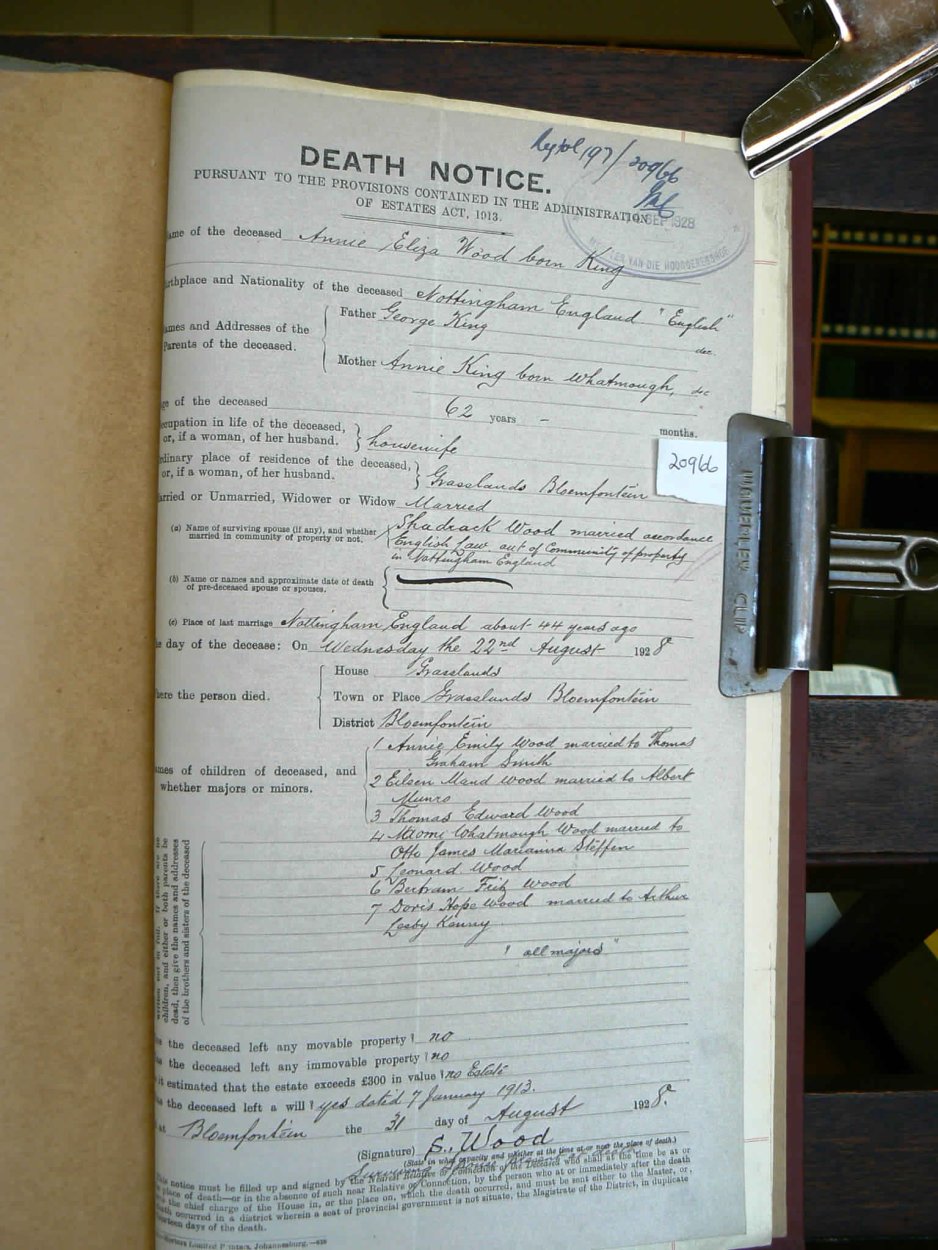 197/20966
DEATH NOTICE.
PURSUANT TO THE PROVISIONS CONTAINED IN THE ADMINISTRATION
OF ESTATES ACT, 1913.
SEP 1928
VAN DIE HOOGGEREGSHOF
ame of the deceased Annie Eliza Wood born King
rthplace and Nationality of the deceased Nottingham England "English"
ames and Addresses of the Parents of the deceased.
Father George King dec.
Mother Annie King born Whatmough, dec
ge of the deceased 62 years – months.
ccupation in life of the deceased,
or, if a woman, of her husband. } housewife
20966
rdinary place of residence of the deceased,
or, if a woman, of her husband. } Grasslands Bloemfontein
arried or Unmarried, Widower or Widow Married
(a) Name of surviving spouse (if any), and whether married in community of property or not.
Shadrack Wood married accordance
English Law out of Community of property
in Nottingham England
(b) Name or names and approximate date of death
of pre-deceased spouse or spouses.
(c) Place of last marriage Nottingham England about 44 years ago
e day of the decease: On Wednesday the 22nd August 1928
here the person died.
House Grasslands
Town or Place Grasslands Bloemfontein
District Bloemfontein
ames of children of deceased, and
whether majors or minors.
1 Annie Emily Wood married to Thomas
Graham Smith
2 Eileen Maud Wood married to Albert
Munro
3 Thomas Edward Wood
4 Naomi Whatmough Wood married to
Otto James Marianna Steffen
5 Leonard Wood
6 Bertram Fritz Wood
7 Doris Hope Wood married to Arthur
Lesby Kenny
"all majors"
children, and either or both parents be
dead, then give the names and addresses
of the brothers and sisters of the deceased
s the deceased left any movable property? no
s the deceased left any immovable property? no
it estimated that the estate exceeds £300 in value? no Estate
s the deceased left a will? yes dated 7 January 1913.
at Bloemfontein the 31 day of August 1928.
(Signature) S. Wood
(State in what capacity and whether at the time at or near the place of death.)
his notice must be filled up and signed by the Nearest Relative or Connection of the Deceased who shall at the time be at or
place of death—or in the absence of such near Relative or Connection, by the person who at or immediately after the death
the chief charge of the House in, or the place on, which the death occurred, and must be sent either to the Master, or,
eath occurred in a district wherein a seat of provincial government is not situate, the Magistrate of the District, in duplicate
urteen days of the death.
Limited Printers, Johannesburg.
CLIP